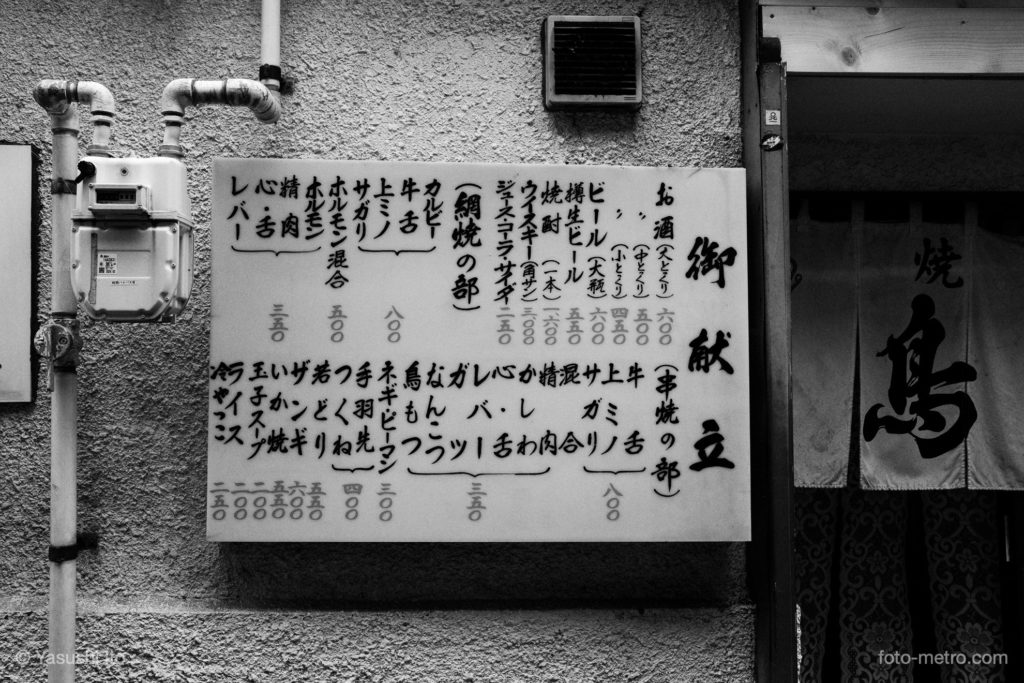 御献立
お酒(大とくり) 六〇〇
〃(中とくり) 五〇〇
〃(小とくり) 四五〇
ビール(大瓶) 六〇〇
樽生ビール 五五〇
焼酎(一本) 一、六〇〇
ウイスキー(角サン) 三〇〇
ジュース・コーラ・サイダー 二五〇
(網焼の部)
カルビー
牛舌
上ミノ
サガリ
八〇〇
ホルモン混合 五〇〇
ホルモン
精肉
心・舌
レバー
三五〇
(串焼の部)
牛舌
上ミノ
サガリ
八〇〇
混合
精肉
かしわ
心・舌
レバー
ガツ
なんこつ
鳥もつ
三五〇
ネギ・ピーマン 三〇〇
手羽先
つくね
四〇〇
若どり 五五〇
ザンギ 六〇〇
いか焼 五五〇
玉子スープ 二〇〇
ライス 二〇〇
冷やっこ 二五〇
焼
鳥
© Yasushi Ito
foto-metro.com